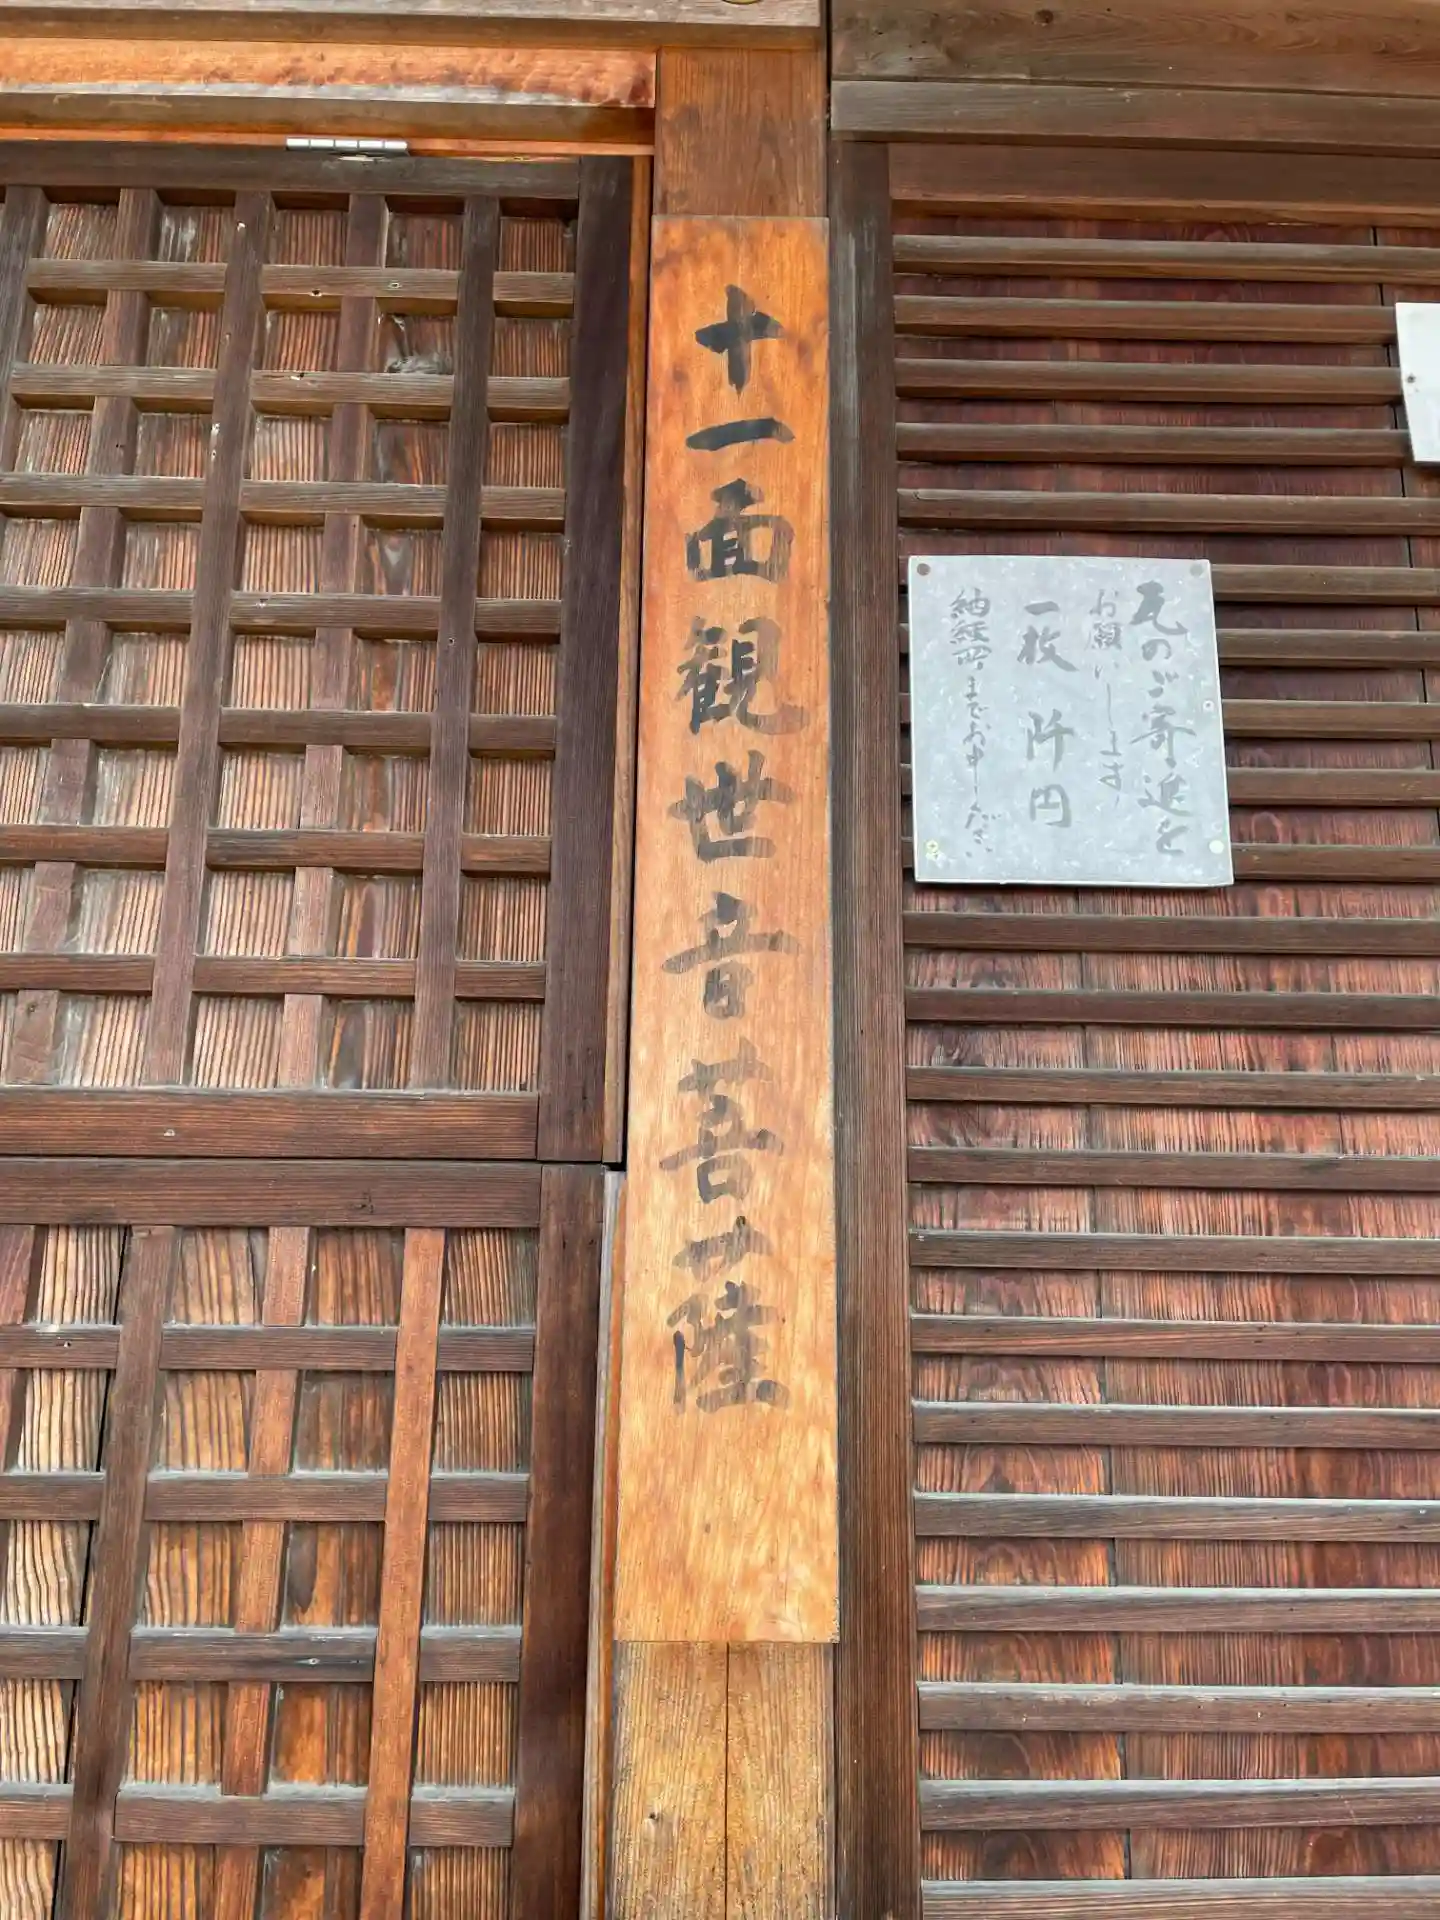 十一面観世音菩薩
瓦のご寄進を
お願いします
一枚 阡円
納経所までお申し下さい